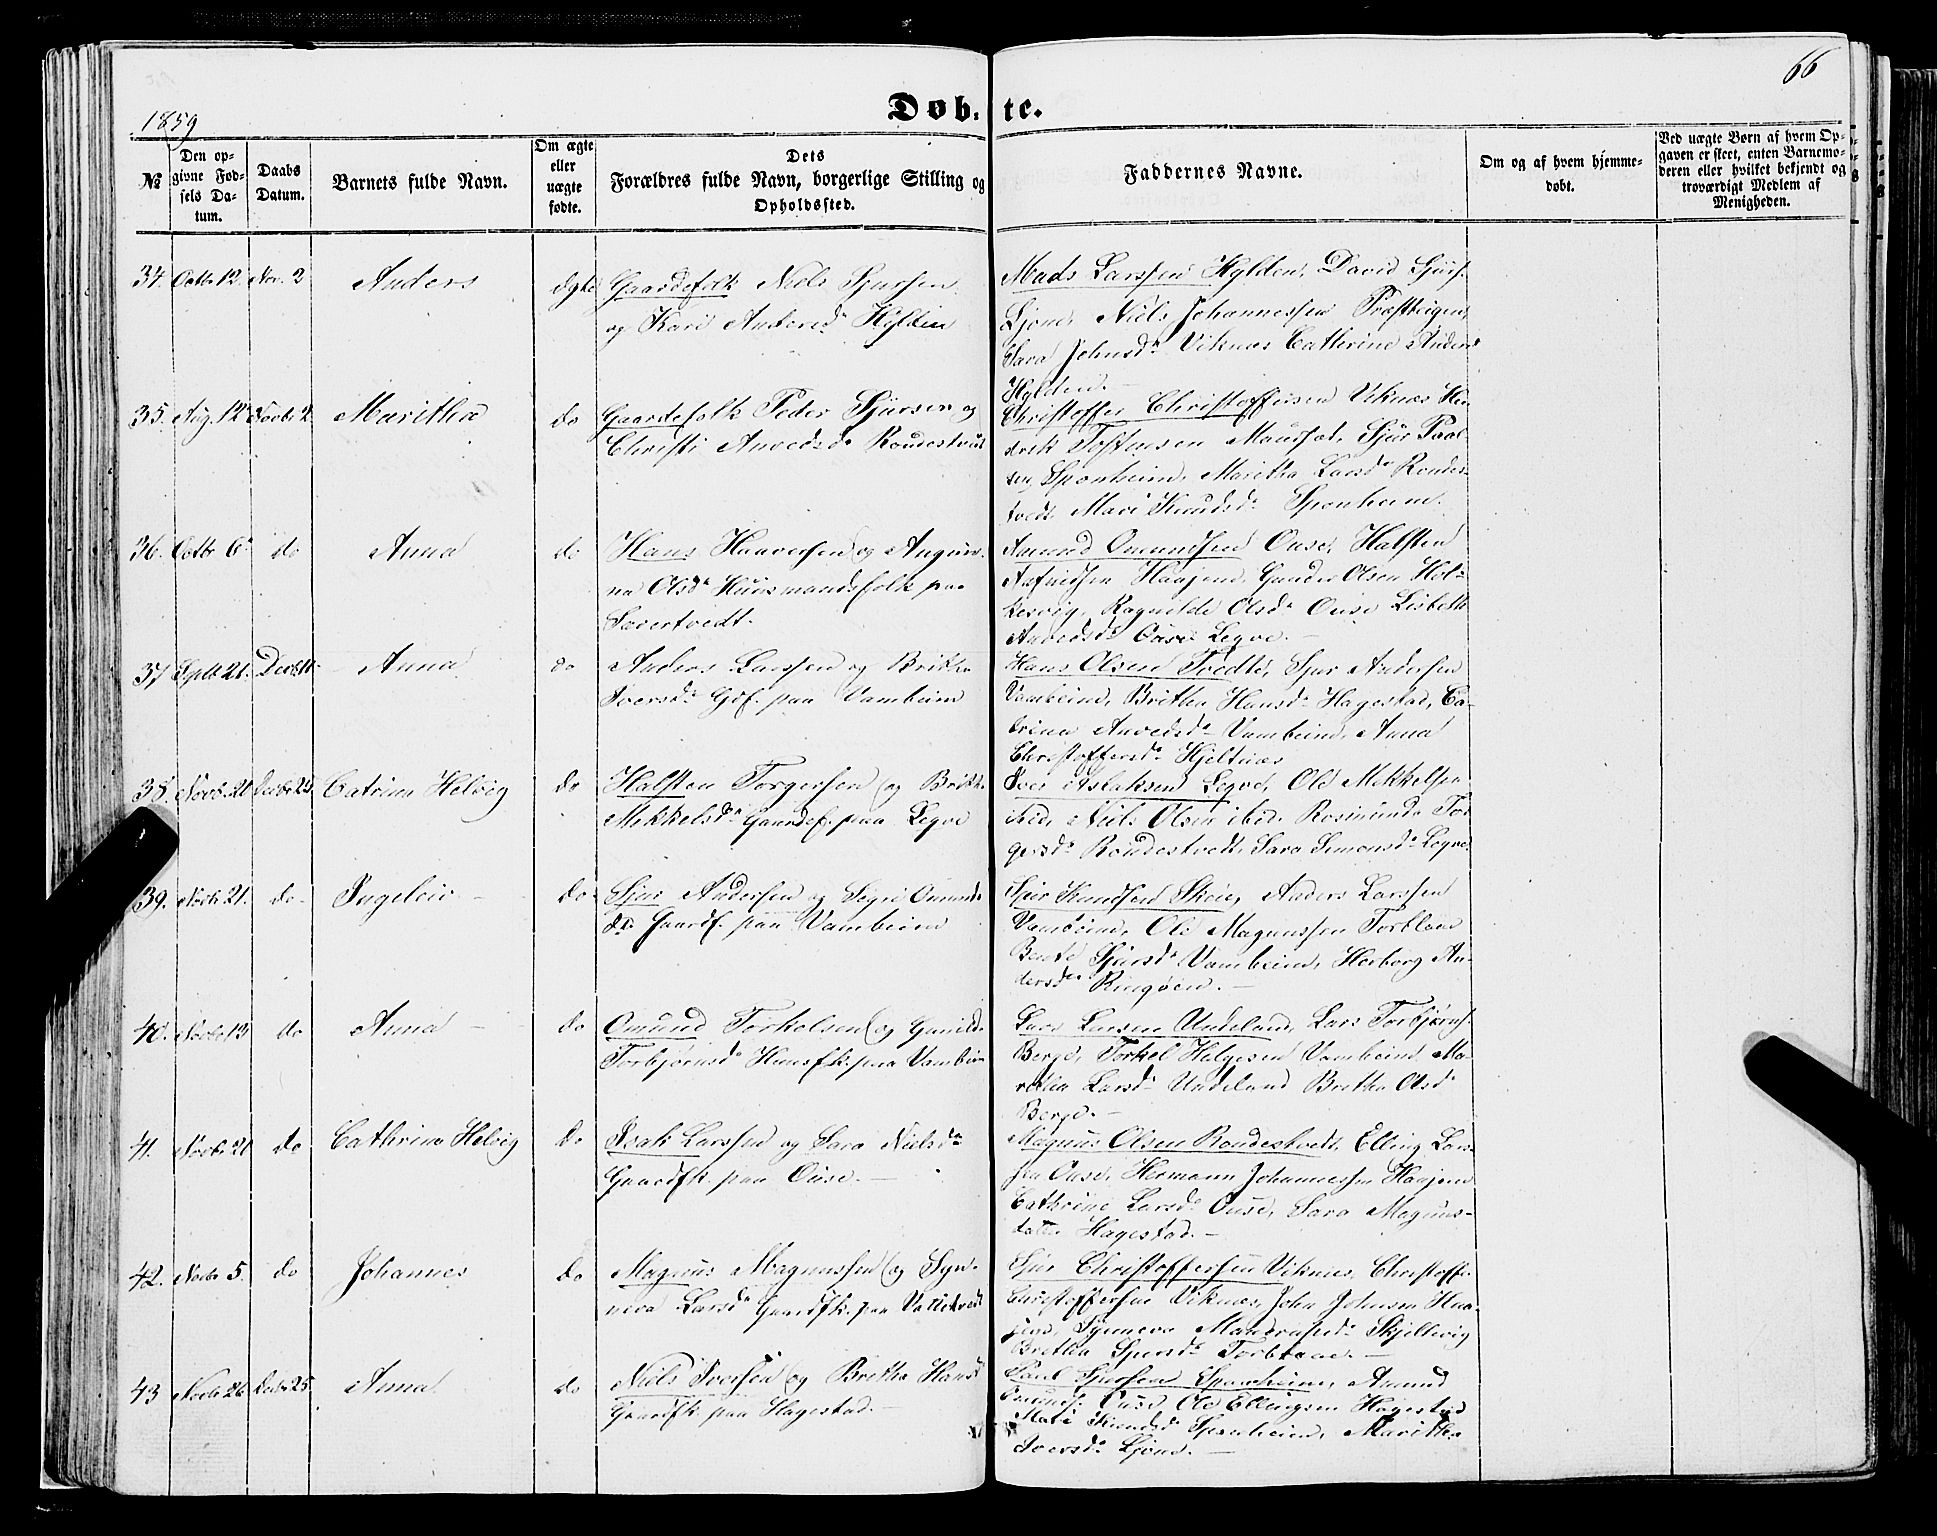 66
Døb-te.
1859
№
Den op-
givne Fød-
sels Da-
tum.
Daabs
Datum.
Barnets fulde Navn.
Om ægte
eller
uægte
fødte.
Dets
Forældres fulde Navn, borgerlige Stilling og
Opholdssted.
Faddernes Navne.
Om og af hvem hjemme-
døbt.
Ved uægte Børn af hvem Op-
gaven er skeet, enten Barnemo-
deren eller hvilket bekjendt og
troværdigt Medlem af
Menigheden.
34. Octb 12. Nov. 2 Anders ægte Gaardefolk Niels Sjursen
og Kari Andersd. Hylden
Mads Larssen Hylden, David Sjurs.
Ljone, Niels Johannessen Præsteigen,
Sara Johnsd. Viknæs Cathrine Anders
Hylden.
35. Aug. 12 Novbr 2. Maritha do Gaardefolk Peder Sjursen og
Christi Anvedsd. Rondestvedt
Christoffer Christoffersen Viknæs Hen-
drik Tostensen Maursæt, Sjur Paal-
sen Sponheim, Maritha Larsd. Rondes-
tvedt Mari Knudsd. Sponheim.
36. Octb 6 do Anna do Hans Haaversen og Angun-
na Olsd. Huusmandsfolk paa
Sævertvedt.
Amund Omundsen Ouse, Halsten
Haajene, Gunder Olsen Hol-
kesvig, Ragnilde Olsd. Ouse Lisbeth
Anvedsd. Ouse Legve.
37 Septb 21. Decb 11 Anna do Anders Larssen og Britha
Iversd. Gdf. paa Vambeim
Hans Olsen Tvedte, Sjur Andersen
Vambeim, Britha Hansd. Hagestad, Ca-
trina Anvedsd. Vambeim, Anna
Christoffersd. Hjeltnæs
38. Novb. 20 Decbr 25 Catrina Helvig do Halsten Torgersen og Britha
Mikkelsd. Gaardf. paa Legve
Iver Aslaksen Legve, Ole Mikkelsen
ibid, Niels Olsen ibid. Rosimunda Tor-
gersd. Rondestvedt, Sara Simonsd. Legve.
39. Novb. 21. do Ingeleiv do Sjur Andersen og Sigri Omunds
dr. Gaardf. paa Vambeim
Sjur Knudsen Skeie, Anders Larssen
Vambeim, Ole Magnussen Torblaae
Bente Sjursd. Vambeim, Herborg An-
dersd. Ringøen.
40. Novb 13 do Anna do Omund Torkelsen og Gunilde
Torbjørnsd. Huusfk. paa Vambeim
Lars Larsen Undeland, Lars Torbjørns.
Berge, Torkel Helgesen Vambeim, Ma-
ritha Larsd. Undeland Britha Olsd.
Berge.
41. Novb 20 do Cathrina Helvig do Isak Larssen og Sara Nielsd.
Gaardfk. paa Ouse.
Magnus Olsen Rondestvedt, Elling Lars-
sen Ouse, Hermann Johannessen Haajene
Cathrine Larsd. Ouse, Sara Magnus-
datter Hagestad.
42. Novb 5. do Johannes do Magnus Magnussen og Syn-
neva Larsd. Gaardfk. paa
Sjur Christoffersen Viknæs, Christoffer
Christoffersen Viknæs, John Johnsen Haa-
jene, Synneva Mandrupsd. Skjeltvig
Britha Sjursd. Torblaae.
43 Novb 26 Decbr 25 Anna do Niels Iversen og Britha Hansd
Gaardfk. paa Hagestad.
Paul Sjursen Sponheim, Amund
Omunds. Ouse, Ole Ellingsen Hagestad
Mari Knudsd. Sponheim, Maritha
Iversd. Ljone.